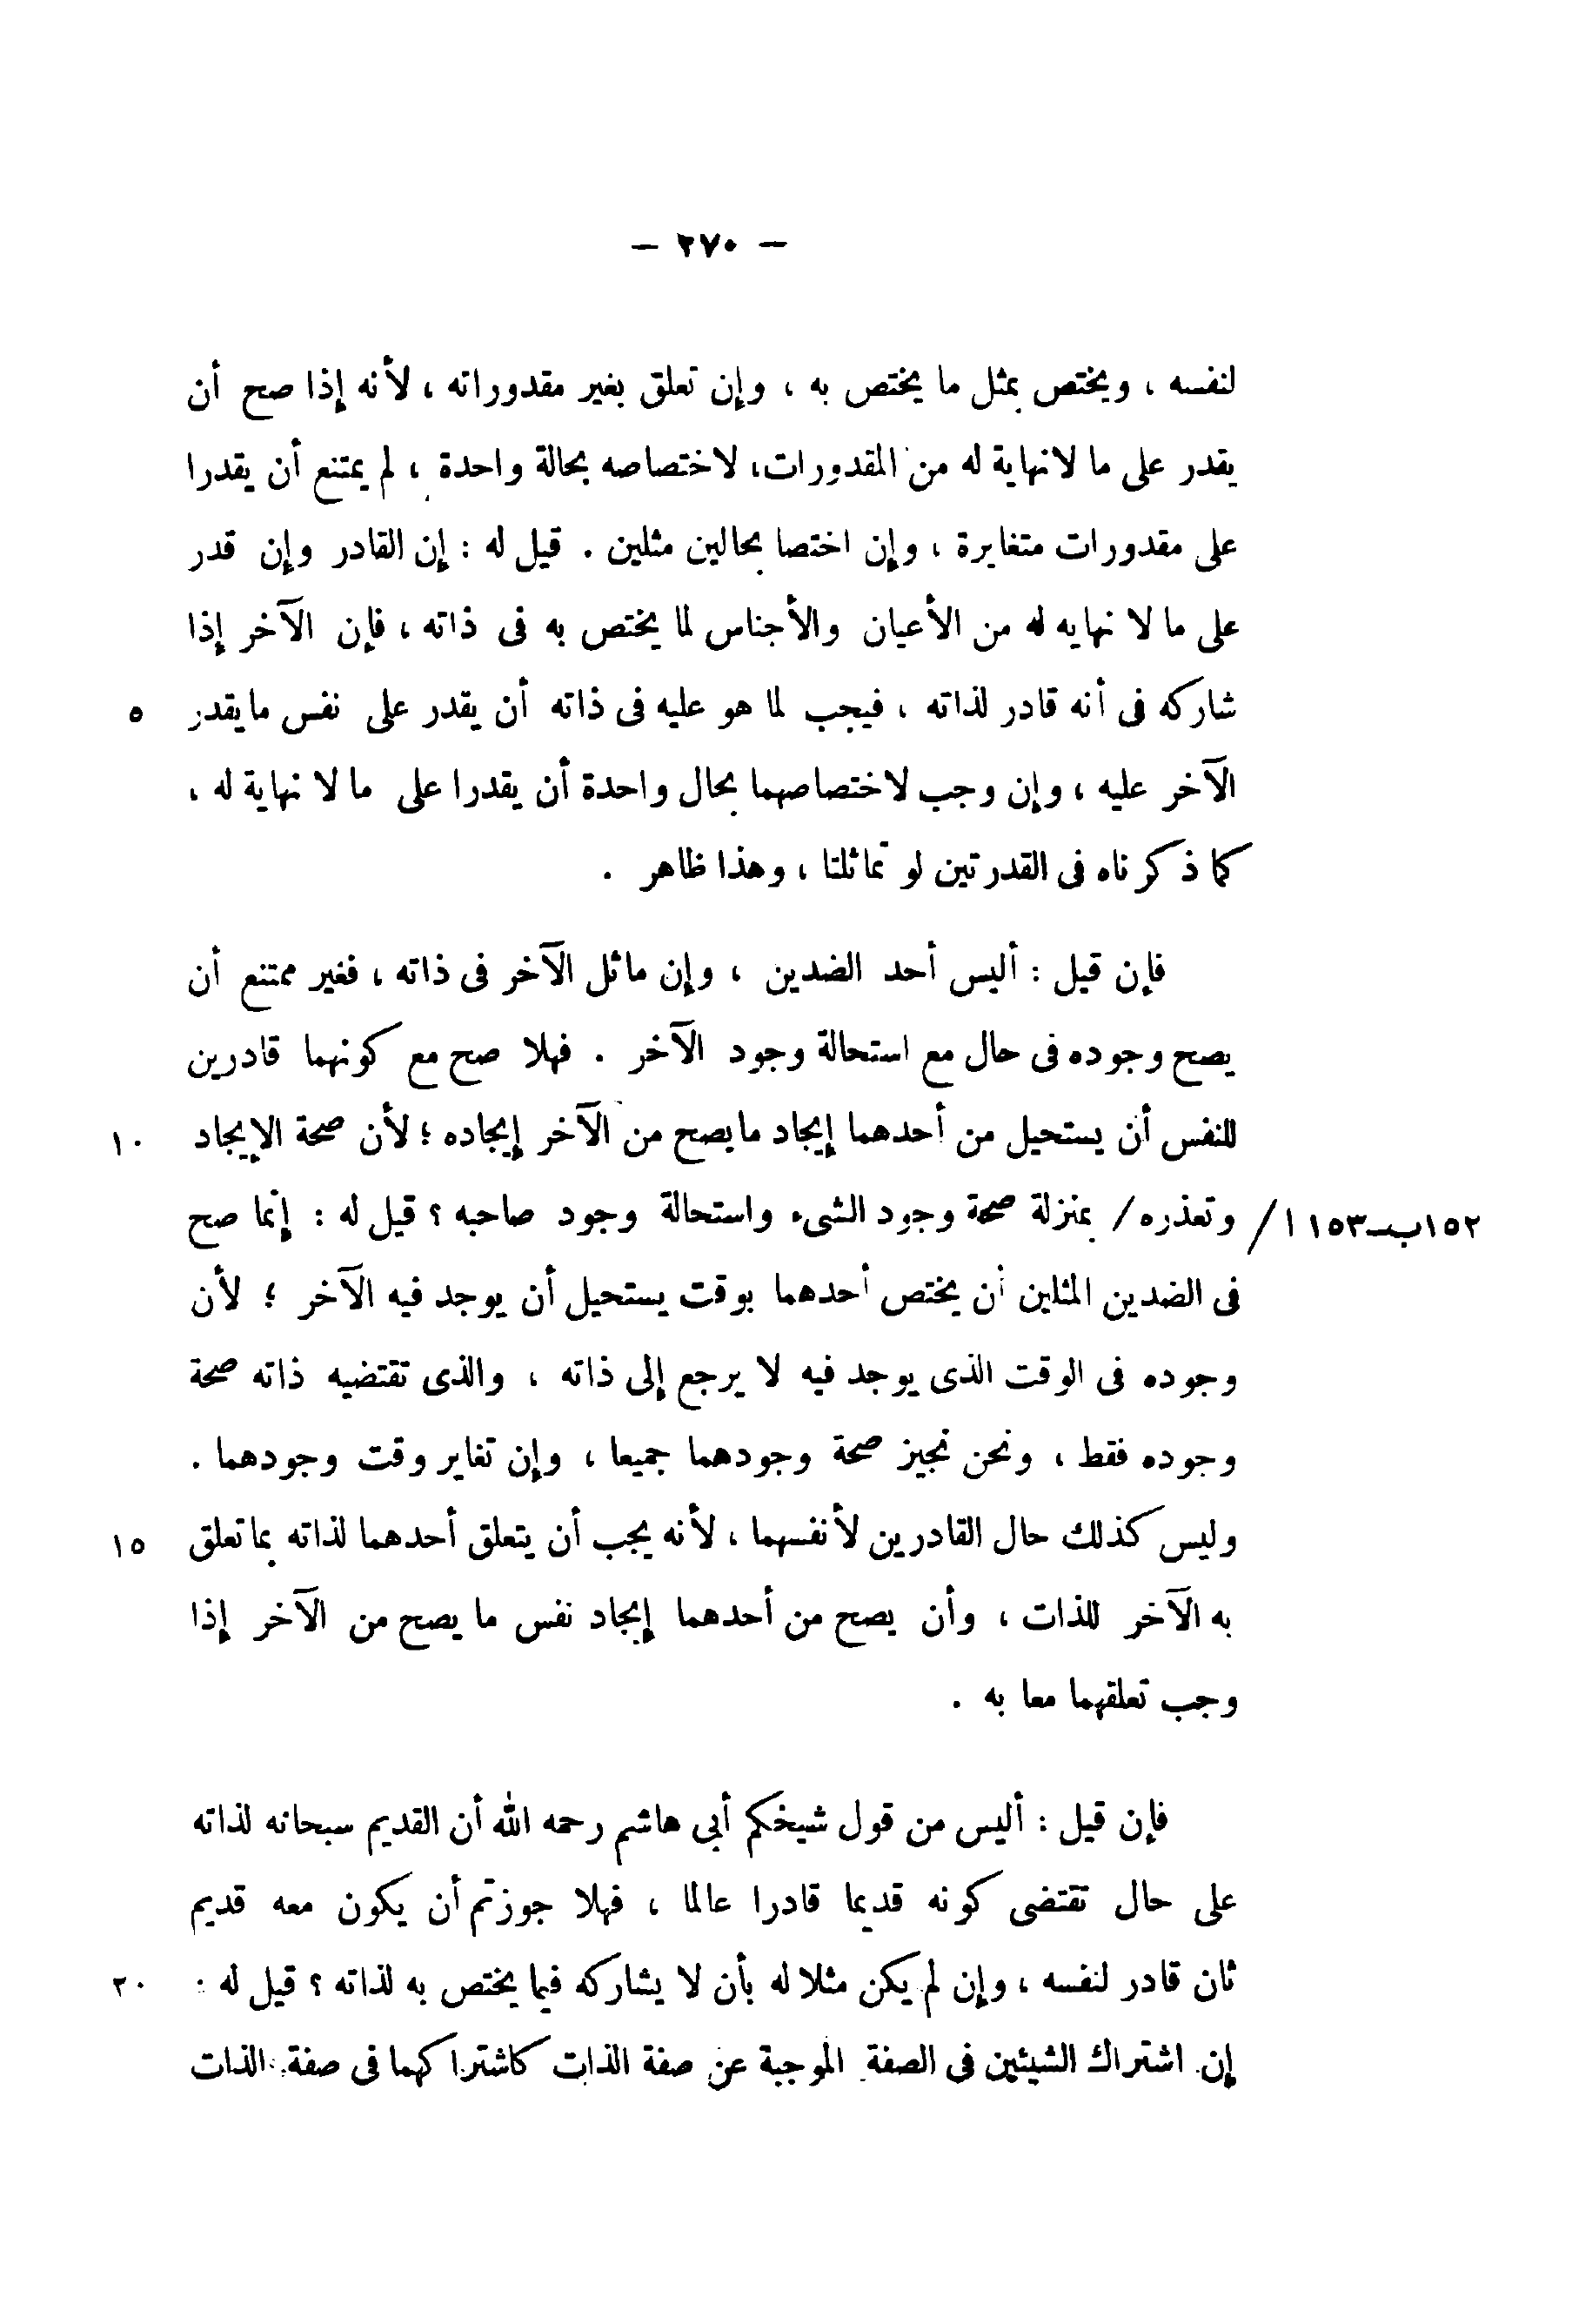 — ٢٧٠ —
لنفسه ، ويختص بمثل ما يختص به ، وإن تعلق بغير مقدوراته ، لأنه إذا صح أن
يقدر على ما لانهاية له من المقدورات، لاختصاصه بحالة واحدة ، لم يمتنع أن يقدرا
على مقدورات متغايرة ، وإن اختصا بحالين مثلين . قيل له : إن القادر وإن قدر
على ما لا نهايه له من الأعيان والأجناس لما يختص به فى ذاته ، فإن الآخر إذا
شاركه فى أنه قادر لذاته ، فيجب لما هو عليه فى ذاته أن يقدر على نفس مايقدر ٥
الآخر عليه ، وإن وجب لاختصاصهما بحال واحدة أن يقدرا على ما لا نهاية له ،
كما ذكرناه فى القدرتين لو تماثلتا ، وهذا ظاهر .
فإن قيل : أليس أحد الضدين ، وإن ماثل الآخر فى ذاته ، فغير ممتنع أن
يصح وجوده فى حال مع استحالة وجود الآخر . فهلا صح مع كونهما قادرين
للنفس أن يستحيل من أحدهما إيجاد مايصح من الآخر إيجاده ؛ لأن صحة الإيجاد ١٠
١٥٢ب—١٥٣ ا/ وتعذره/ بمنزلة صحة وجود الشىء واستحالة وجود صاحبه ؟ قيل له : إنما صح
فى الضدين المثلين أن يختص أحدهما بوقت يستحيل أن يوجد فيه الآخر ؛ لأن
وجوده فى الوقت الذى يوجد فيه لا يرجع إلى ذاته ، والذى تقتضيه ذاته صحة
وجوده فقط ، ونحن نجيز صحة وجودهما جميعا ، وإن تغاير وقت وجودهما .
وليس كذلك حال القادرين لأنفسهما ، لأنه يجب أن يتعلق أحدهما لذاته بما تعلق ١٥
به الآخر للذات ، وأن يصح من أحدهما إيجاد نفس ما يصح من الآخر إذا
وجب تعلقهما معا به .
فإن قيل : أليس من قول شيخكم أبى هاشم رحمه الله أن القديم سبحانه لذاته
على حال تقتضى كونه قديما قادرا عالما ، فهلا جوزتم أن يكون معه قديم
ثان قادر لنفسه ، وإن لم يكن مثلا له بأن لا يشاركه فيما يختص به لذاته ؟ قيل له : ٢٠
إن اشتراك الشيئين فى الصفة الموجبة عن صفة الذات كاشتراكهما فى صفة الذات